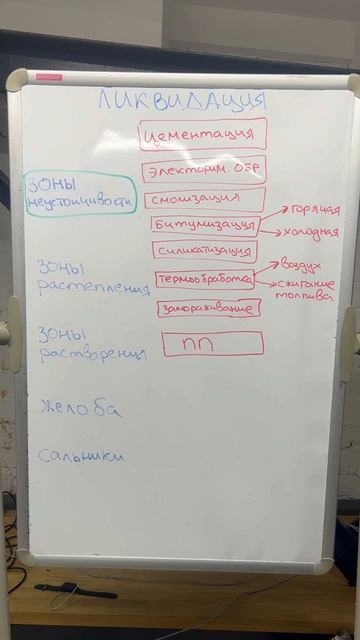 ЛИКВИДАЦИЯ
Цементация
Электрохим. ОБР
ЗОНЫ
неустойчивости
Смолизация
Битумизация
горячая
холодная
Силикатизация
ЗОНЫ
растепления
Термообработка
воздух
сжигание
топлива
Замораживание
ЗОНЫ
растворения
ПП
Желоба
сальники